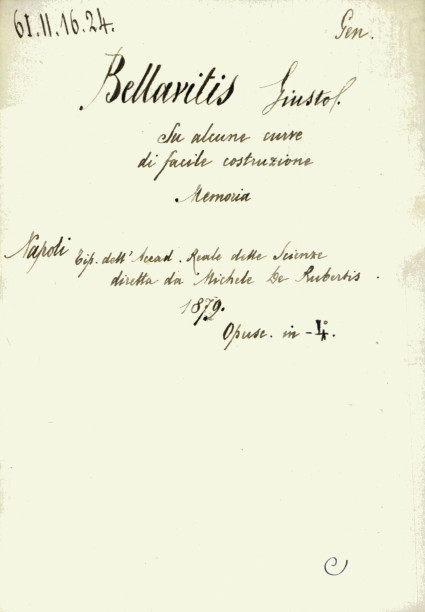 61.II.16.24.
Gen.
Bellavitis Giusto.
Su alcune curve
di facile costruzione
Memoria
Napoli Tip. dell'Accad. Reale delle Scienze
diretta da Michele De Rubertis.
1879.
Opusc. in-4º.